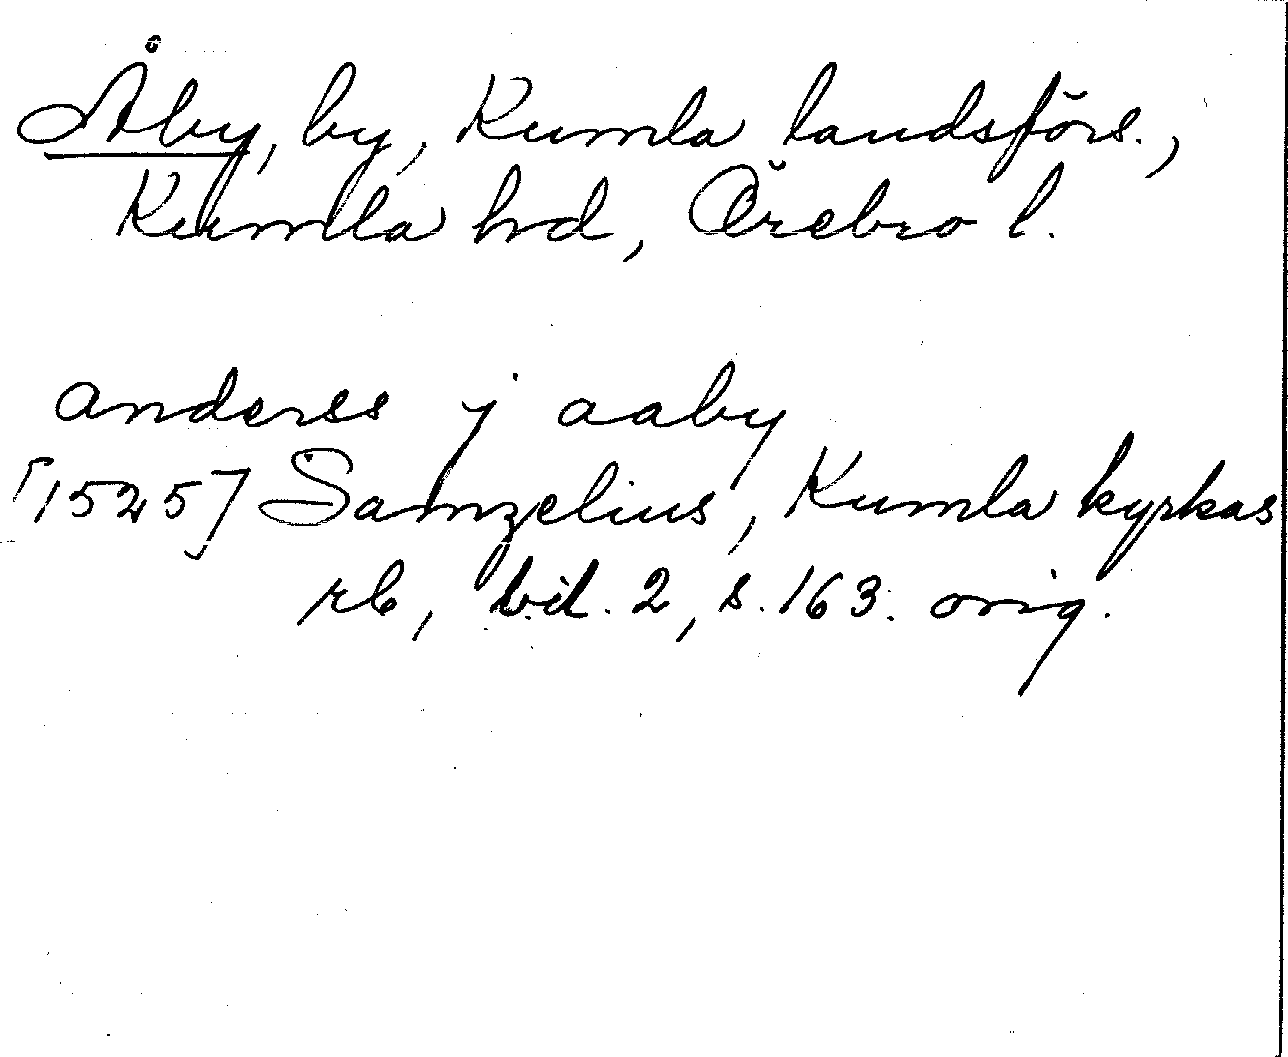 Åby, by, Kumla landsförs.,
Kumla hd, Örebro l.
anderss j aaby
[1525] Samzelius, Kumla kyrkas
rb, bil. 2, s. 163. orig.